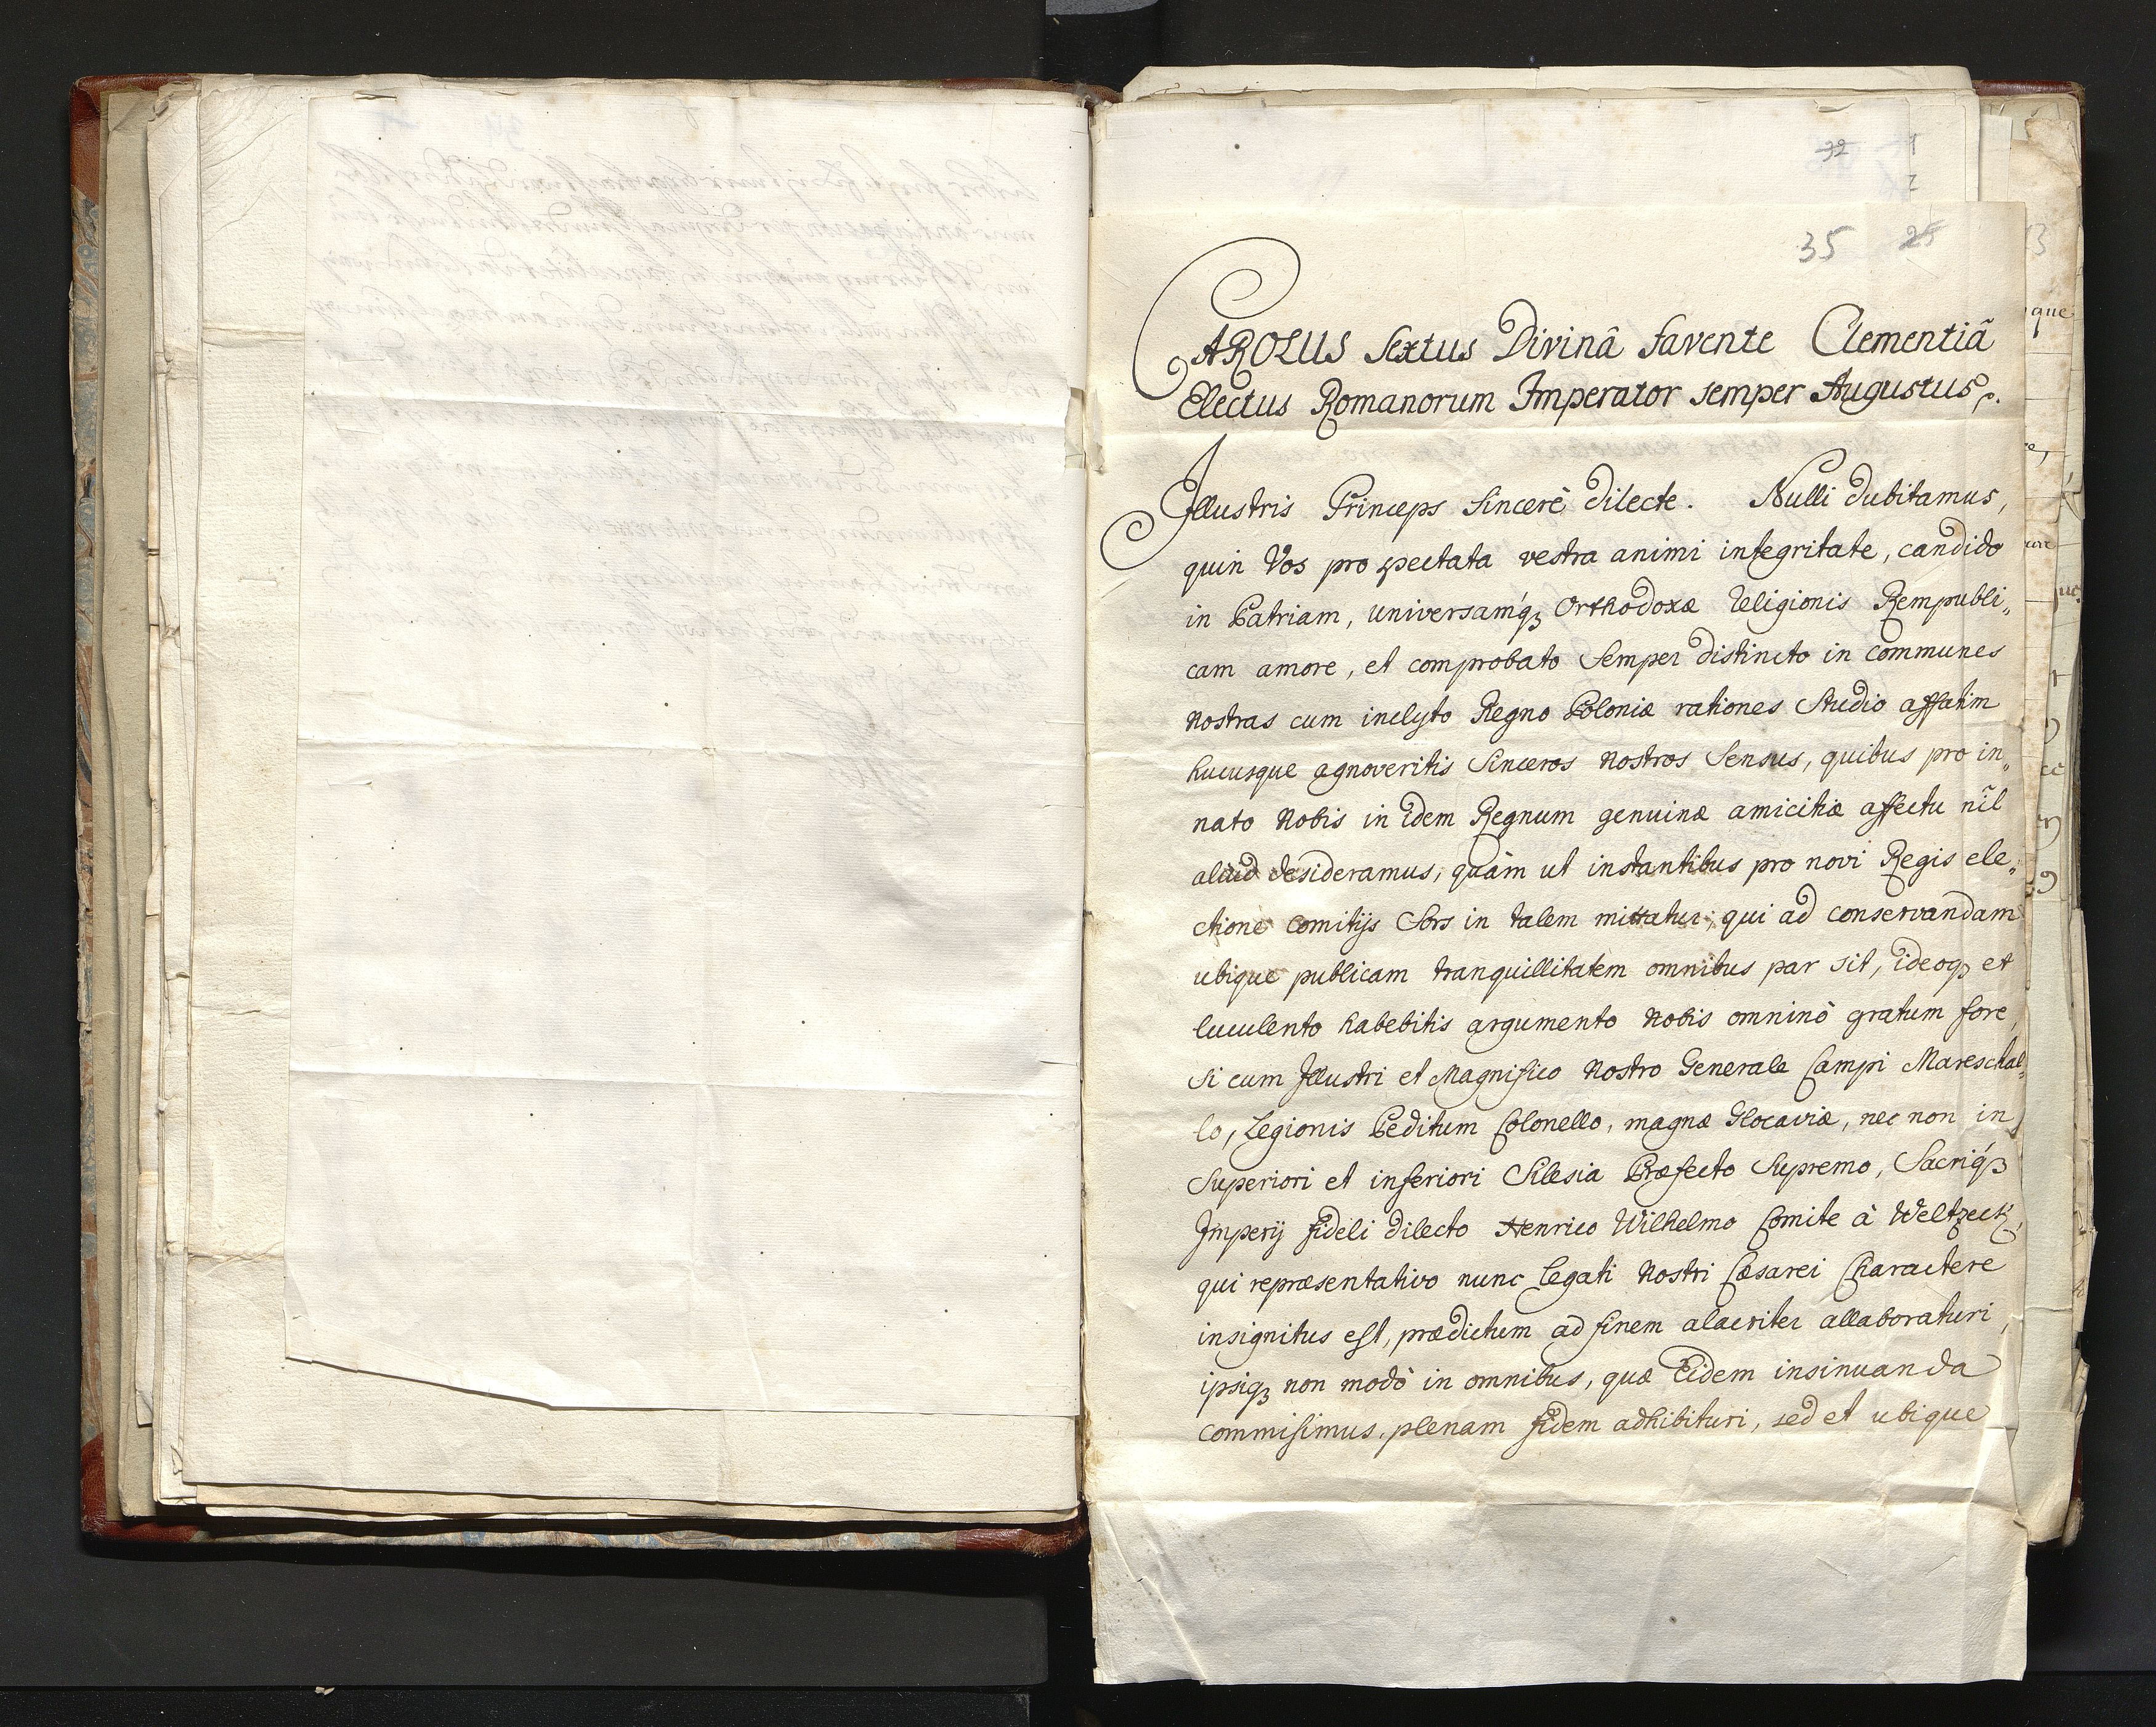 32
35 25
CAROLUS Sextus Divinâ favente Clementiâ
Electus Romanorum Imperator semper Augustus
Illustris Princeps sincerè dilecte. Nulli dubitamus,
quin Vos pro spectata vestra animi integritate, candido
in Patriam, universamq́ꝫ Orthodoxæ Religionis Rempubli„
cam amore, et comprobato semper distincto in communes
nostras cum inclyto Regno Poloniæ rationes studio affatim
hucusque agnoveritis sinceros nostros sensus, quibus pro in„
nato nobis in idem Regnum genuinæ amicitiæ affectu nĩl
aliud desideramus, quàm ut instantibus pro novi Regis ele„
ctione comitijs sors in talem mittatur, qui ad conservandam
ubique publicam tranquillitatem omnibus par sit, ideoqꝫ et
luculento habebitis argumento nobis omninò gratum fore,
si cum Illustri et Magnifico nostro Generale Campi Mareschal„
lo, Legionis Peditum Colonello, magnæ Glocaviæ, nec non in
Superiori et inferiori Silesia Præfecto Supremo, Sacriq́ꝫ
Imperij fideli dilecto Henrico Wilhelmo Comite à Weltzeck,
qui repræsentativo nunc Legati nostri Cæsarei Charactere
insignitus est, prædictum ad finem alacriter allaboraturi,
ipsiqꝫ non modò in omnibus, quæ Eidem insinuanda
commisimus, plenam fidem adhibituri, sed et ubique